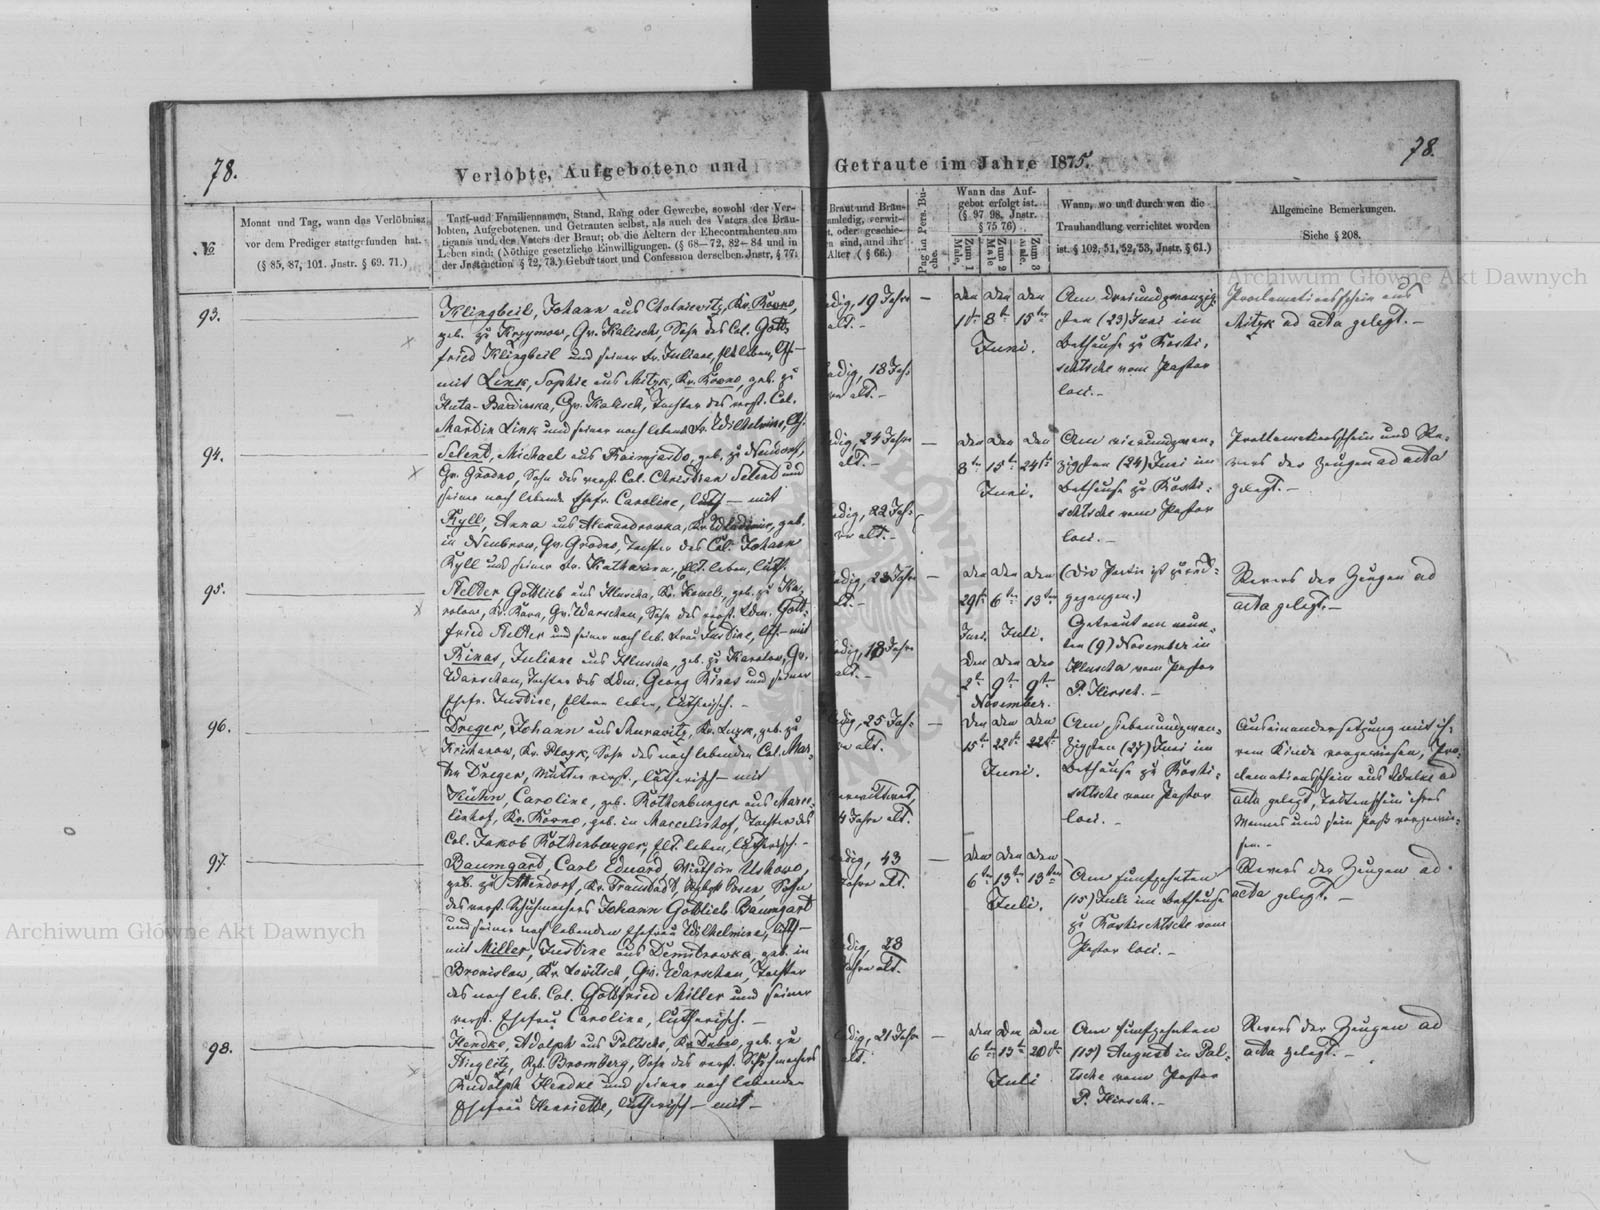 78.
Verlobte, Aufgebotene und
Getraute im Jahre 1875.
78.
№
Monat und Tag, wann das Verlöbniss
vor dem Prediger stattgefunden hat.
(§ 85, 87, 101. Jnstr. § 69. 71.)
Tauf- und Familiennamen, Stand, Rang oder Gewerbe, sowohl der Ver-
lobten, Aufgebotenen, und Getrauten selbst, als auch des Vaters des Bräu-
tigams und des Vaters der Braut; ob die Aeltern der Ehecontrahenten am
Leben sind; (Nöthige gesetzliche Einwilligungen. (§ 68—72, 82—84 und in
der Jnstruction § 72, 73.) Geburtsort und Confession derselben. Jnstr. § 77.
Braut und Bräu-
ledig, verwit-
t, oder geschie-
n sind, und ihr
Alter (§ 66.)
Pag. im Pers. Bu-
che.
Wann das Auf-
gebot erfolgt ist.
(§ 97 98. Jnstr.
§ 75 76)
Zum 1 Male.
Zum 2 Male
Zum 3 Male.
Wann, wo und durch wen die
Trauhandlung verrichtet worden
ist. § 102, 51, 52, 53, Jnstr. § 61.)
Allgemeine Bemerkungen.
Siehe § 208.
Archiwum Główne Akt Dawnych
93.
Klingbeil, Johann aus Kr. Kowno,
geb. zu Krzymow, Gv. Kalisch, Sohn des Col. Gott-
fried Klingbeil und seiner Fr. Juliane, Elt. leben,
mit Link, Sophie aus Mitzk, Kr. Kowno, geb. zu
Huta-Bardinska, Gv. Kalisch, Tochter des verst. Col.
Martin Link und seiner noch lebend. Fr. Wilhelmine,
dig, 19 Jahre
alt. —
dig, 18 Jah-
re alt. —
den den den
1t. 8t. 15ten
Juni.
Am dreiundzwanzig-
sten (23) Juni im
Bethause zu Roschi-
schtsche vom Pastor
loci. —
Proclamationsschein aus
Mitzk ad acta gelegt. —
94.
Selent, Michael aus geb. zu Neudorf,
Gv. Grodno, Sohn des verst. Col. Christian Selent und
seiner noch lebende Ehefr. Caroline, luth — mit
Ryll, Anna aus Alexandrowka, Kr. Wladimir, geb.
in Neubrow, Gv. Grodno, Tochter des Col. Johann
Ryll und seiner Fr. Katharina, Elt. leben, luth.
dig, 24 Jahre
alt. —
dig, 22 Jah-
re alt. —
den den den
8t. 15t. 24t.
Juni.
Am vierundzwan-
zigsten (24) Juni im
Bethause zu Roschi-
schtsche vom Pastor
loci. —
Proclamationsschein und Re-
vers der Zeugen ad acta
gelegt. —
95.
Gottlieb aus Hluscha, Kr. Kowel, geb. zu Ka-
rolow, Kr. Rawa, Gv. Warschau, Sohn des verst. Ldm. Gott-
fried und seiner noch leb. Frau Justine, — mit
Rinas, Juliane aus Hluscha, geb. zu Karolow, Gv.
Warschau, Tochter des Ldm. Georg Rinas und seiner
Ehefr. Justine, Eltern leben, lutherisch. —
dig, 23 Jahre
alt. —
dig, 18 Jahre
alt. —
den den den
29t. 6t. 13ten
Juni. Juli.
den den den
2t. 9t. 9t.
November.
(Die Partie ist zurück-
gegangen.)
Getraut am neun-
ten (9) November in
Hluscha vom Pastor
P. Hirsch. —
Revers der Zeugen ad
acta gelegt. —
96.
Dreger, Johann aus Kr. Luzk, geb. zu
Kr. Plozk, Sohn des noch lebenden Col. Mar-
tin Dreger, Mutter verst., lutherisch — mit
Kühn, Caroline, geb. Rothenburger aus Marce-
linhof, Kr. Rowno, geb. in Marcelishof, Tochter des
Col. Jakob Rothenburger, Elt. leben, lutherisch. —
dig, 25 Jah-
re alt.
verwittwet,
Jahre alt.
den den den
15t. 22t. 22t.
Juni.
Am siebenundzwan-
zigsten (27) Juni im
Bethause zu Roschi-
schtsche vom Pastor
loci. —
Auseinandersetzung mit ih-
rem Kinde vorgewiesen, Pro-
clamationsschein aus ad
acta gelegt, Todtenschein ihres
Mannes und sein Paß vorgewie-
sen. —
97.
Baumgard, Carl Eduard, Wirth in Uskowo,
geb. zu Altendorf, Kr. Posen, Sohn
des verst. Schuhmachers Johann Gottlieb Baumgart
und seiner noch lebenden Ehefrau Wilhelmine, luth —
mit Miller, Justine aus Demitrowka, geb. in
Bronislow, Kr. Lowitsch, Gv. Warschau, Tochter
des noch leb. Col. Gottfried Miller und seiner
verst. Ehefrau Caroline, lutherisch. —
dig, 43
Jahre alt.
dig, 23
Jahre alt.
den den den
6ten 13t. 13ten
Juli.
Am fünfzehnten
(15) Juli im Bethause
zu Roschischtsche vom
Pastor loci. —
Revers der Zeugen ad
acta gelegt. —
98.
Hendke, Adolph aus Paltsche, Kr. Dubno, geb. zu
Rgb. Bromberg, Sohn des verst. Schuhmachers
Rudolph Hendke und seiner noch lebenden
Ehefrau Henriette, lutherisch — mit —
dig, 21 Jahre
alt.
den den den
6t. 13t. 20t.
Juli
Am fünfzehnten
(15) August in Pal-
tsche vom Pastor
P. Hirsch. —
Revers der Zeugen ad
acta gelegt. —
Archiwum Główne Akt Dawnych